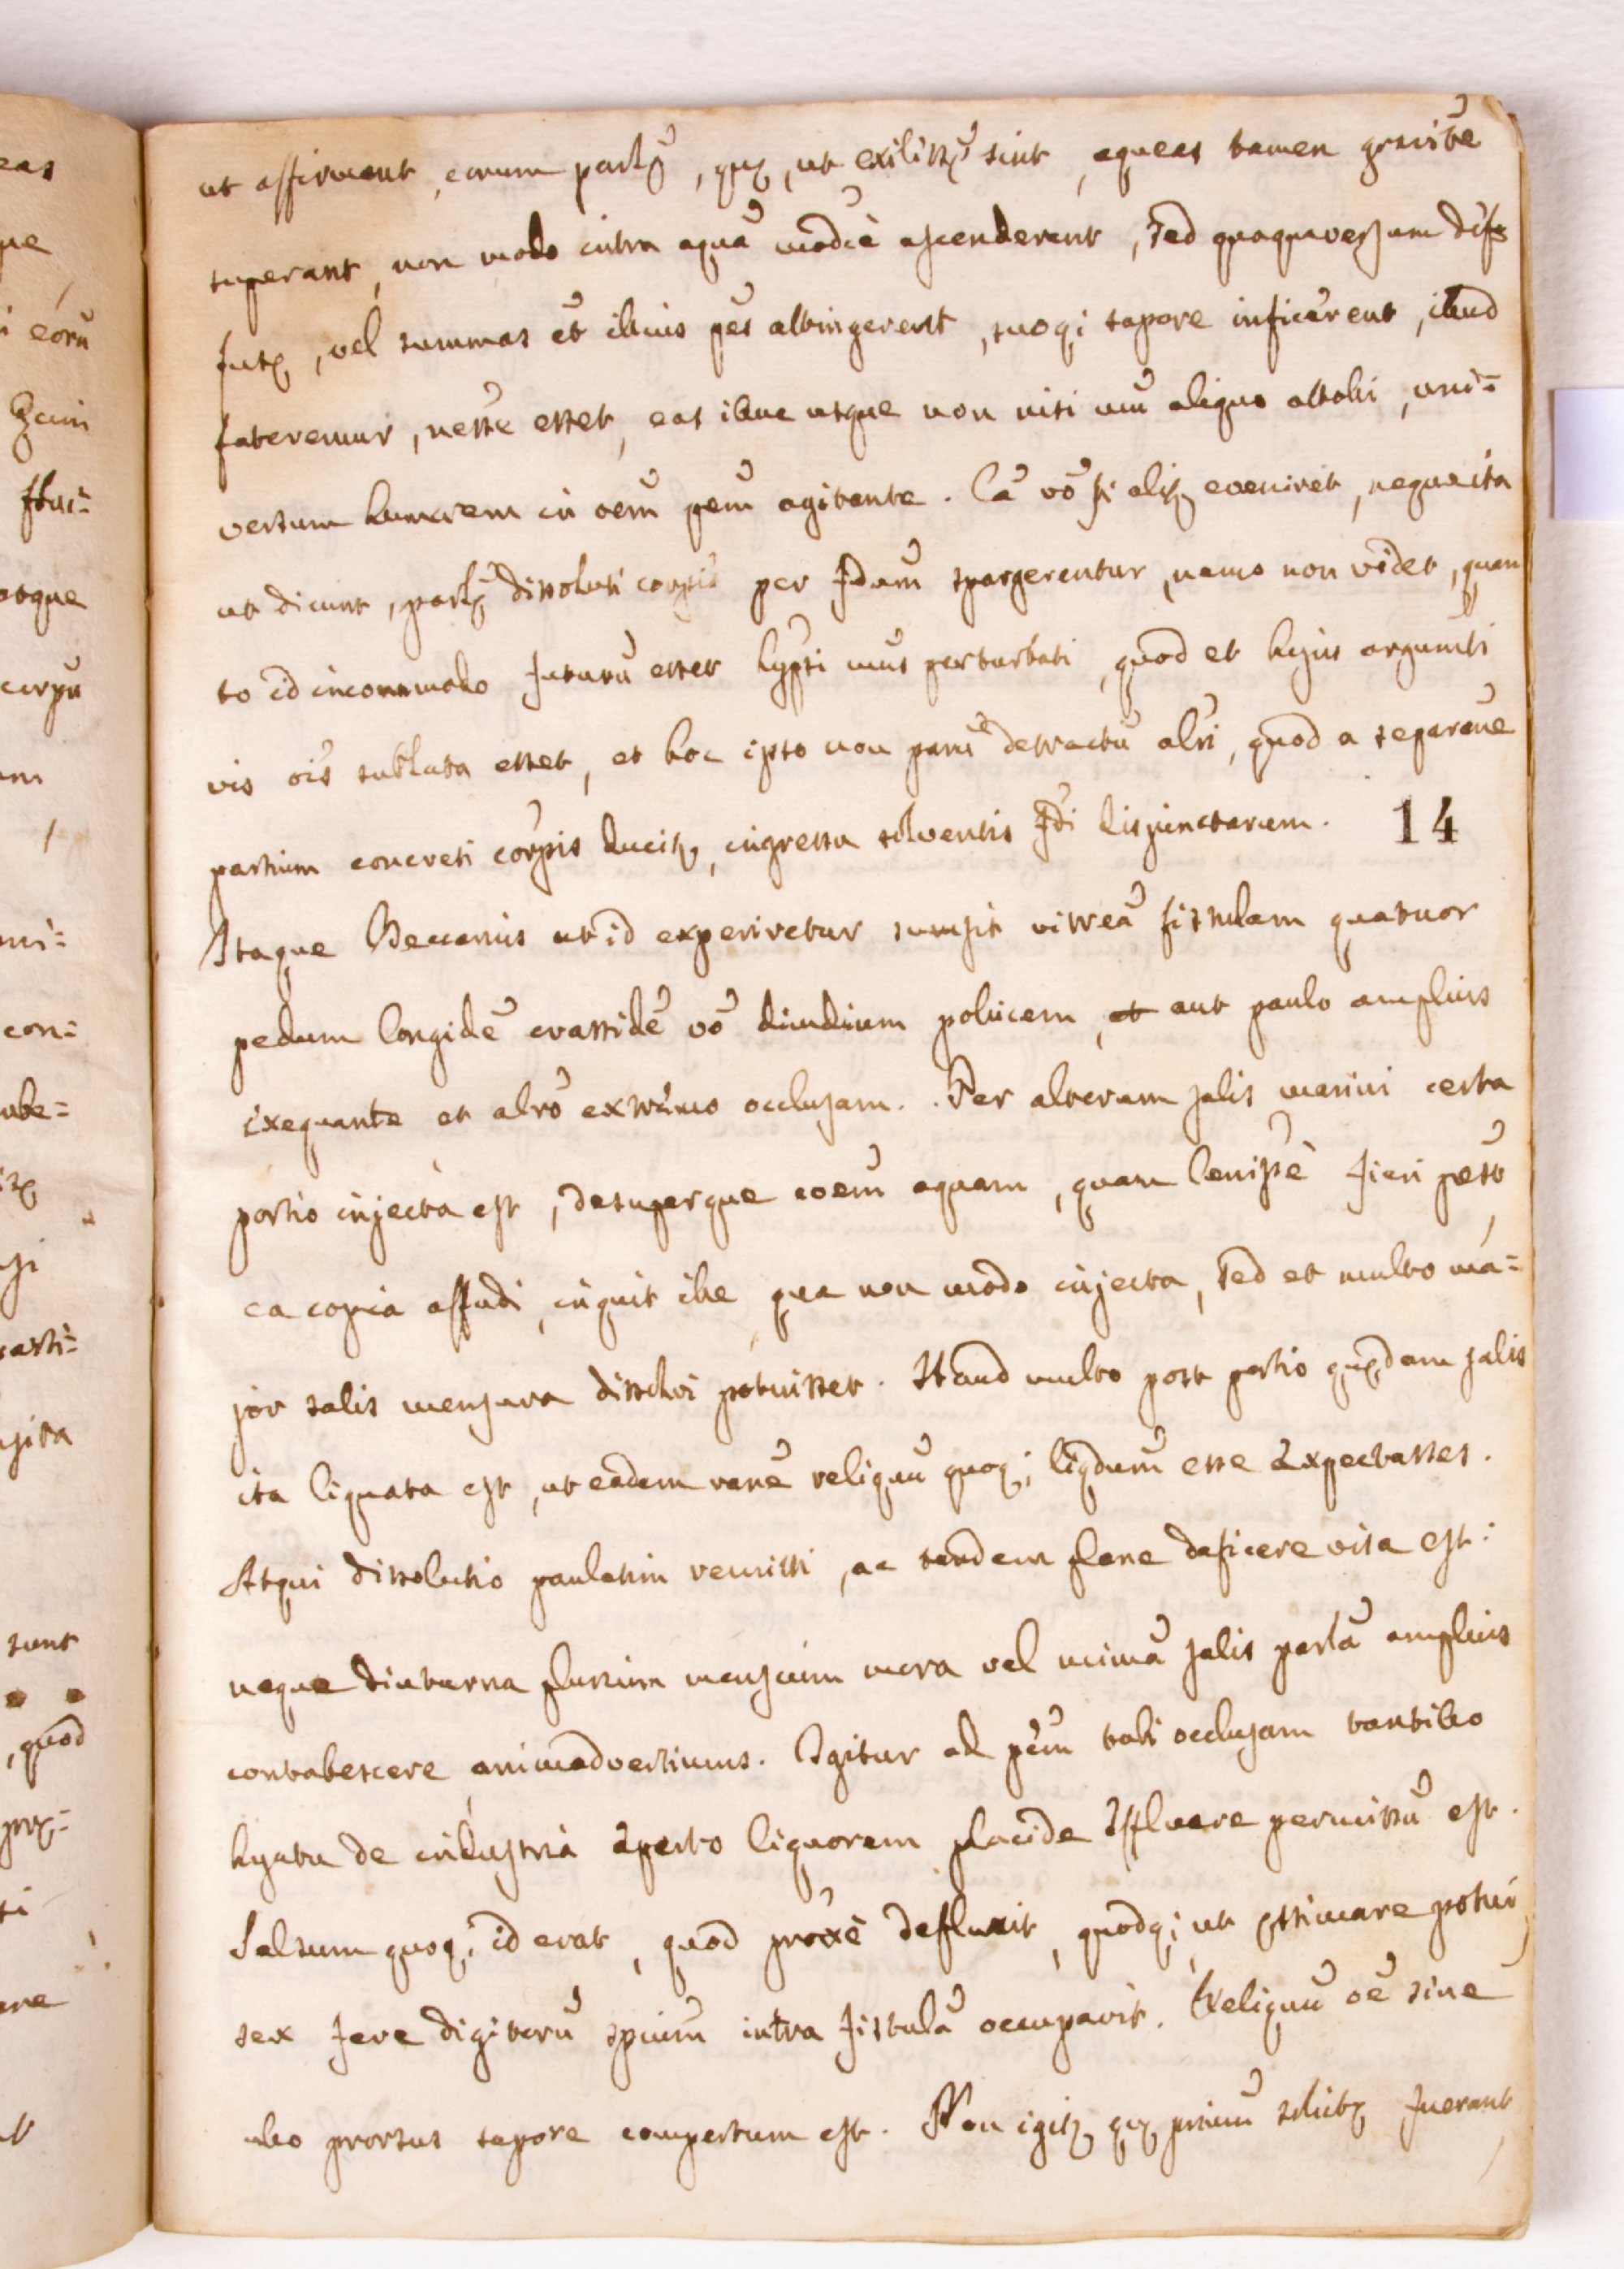 ut affirmant, eorum partẽ, quæ, ut exilissæ̃ sint, aqueas tamen gravitẽ
superant, non modo intra aquã modicè ascenderent, sed quaquaversum dif=
fusæ, vel summas et̃ illius p̃es attingerent, suoq; sapore inficerent, illud
fateremur, nesse esset, eas illuc usque non nisi mũ aliquo attolli, uni=
versum humorem in oem̃ pem̃ agitante. Ca võ si alit̃ eveniret, neque ita
ut dicunt, partæ̃ dissoluti corpis per fdum̃ spargerentur, nemo non videt, quan
to id incommodo futurũ esset hypsi mũs perturbati, quod et hujus argumti
vis oĩs sublata esset, et hoc ipso non parũe detractũ alr̃i, quod a separaũe
partium concreti cor̃pis ducit̃, ingressu solventis fdi disjunctarum. 14
Itaque Beccarius ut id experiretur sumpsit vitreã fistulam quatuor
pedum longidẽ crassidẽ võ dimidium pollicem, et aut paulo amplius
exequante et alrõ extremo occlusam. Per alteram salis marini certa
portio injecta est, desuperque coem̃ aquam, quam lenissè fieri potũ
ea copia affudi, inquit ille qua non modo injecta, sed et multo ma=
jor salis mensura dissolvi potuisset. Haud multo post portio quædam salis
ita liquata est, ut eadem ranẽ reliquũ quoq; liqdum̃ esse expectasses.
Atqui dissolutio paulatim remissi, ac tandem plane deficere visa est:
neque diuturna plurium mensium mora vel mimã salis partã amplius
contabescere animadvertimus. Igitur ad pem̃ tubi occlusam tantillo
hyatu de industria aperto liquorem placide effluere permissũ est.
Salsum quoq; id erat, quod proxẽ defluxit, quodq; ut estimare potui,
sex fere digitorũ spium̃ intra fistulã occupavit. Reliquũ oẽ sine
ullo prorsus sapore compertum est. Non igit̃ quæ primũ solutæ fuerant,